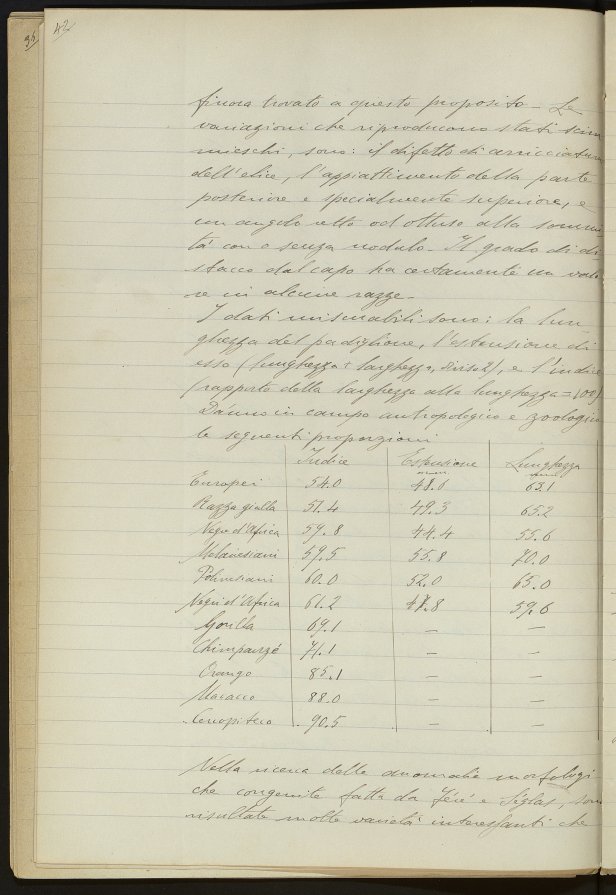 42
finora trovato a questo proposito – Le
variazioni che riproducono stati scim
mieschi, sono: il difetto di arricciatura
dell'elice, l'appiattimento della parte
posteriore e specialmente superiore, e
un angolo retto od ottuso alla sommi
tà con o senza nodulo – Il grado di di
stacco dal capo ha certamente un valo
re in alcune razze –
I dati misurabili sono: la lun-
ghezza del padiglione, l'estensione di
esso (lunghezza + larghezza, divisa 2), e l'indice
(rapporto della larghezza alla lunghezza = 100)
Danno in campo antropologico e zoologico
le seguenti proporzioni
Indice Estensione Lunghezza
Europei 54.0 48.1 63.1
Razza gialla 51.4 49.3 65.2
Negri d'Africa 59.8 44.4 55.6
Melanesiani 59.5 55.8 70.0
Polinesiani 60.0 52.0 65.0
Negri d'Africa 61.2 47.8 59.6
Gorilla 69.1 – –
Chimpanzé 71.1 – –
Orango 85.1 – –
Macacco 88.0 – –
Cercopiteco 90.5 – –
Nella ricerca delle anomalie morfologi
che congenite fatta da Féré e Séglas, sono
risultate molte varietà interessanti che